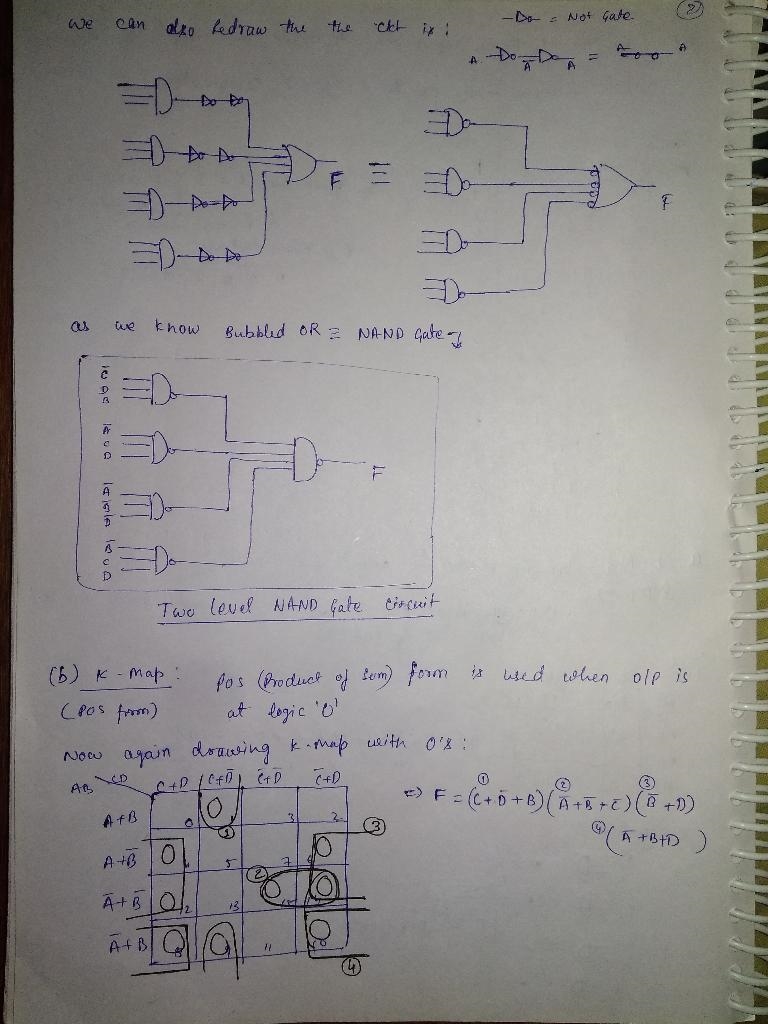 we can also Redraw the the ckt is :
-Do- = Not Gate
②
A Ā A = A A
F ≡ F
as we know Bubbled OR ≡ NAND Gate
C̄
D
B
Ā
C
D
F
Ā
B̄
D̄
B̄
C
D
Two level NAND Gate Circuit
(b) K-Map : POS (Product of Sum) form is used when O/P is
(POS form) at logic '0'
Now again drawing K-map with 0's :
AB CD C+D C+D̄ C̄+D̄ C̄+D
A+B 0 0 3 2
①
A+B̄ 0 5 7 0
③
Ā+B̄ 0 12 13 0 0
②
Ā+B 0 8 0 9 11 0 10
④
⇒ F = (C+D̄+B) (Ā+B̄+C̄) (B̄+D)
① ② ③
④ (Ā+B+D)